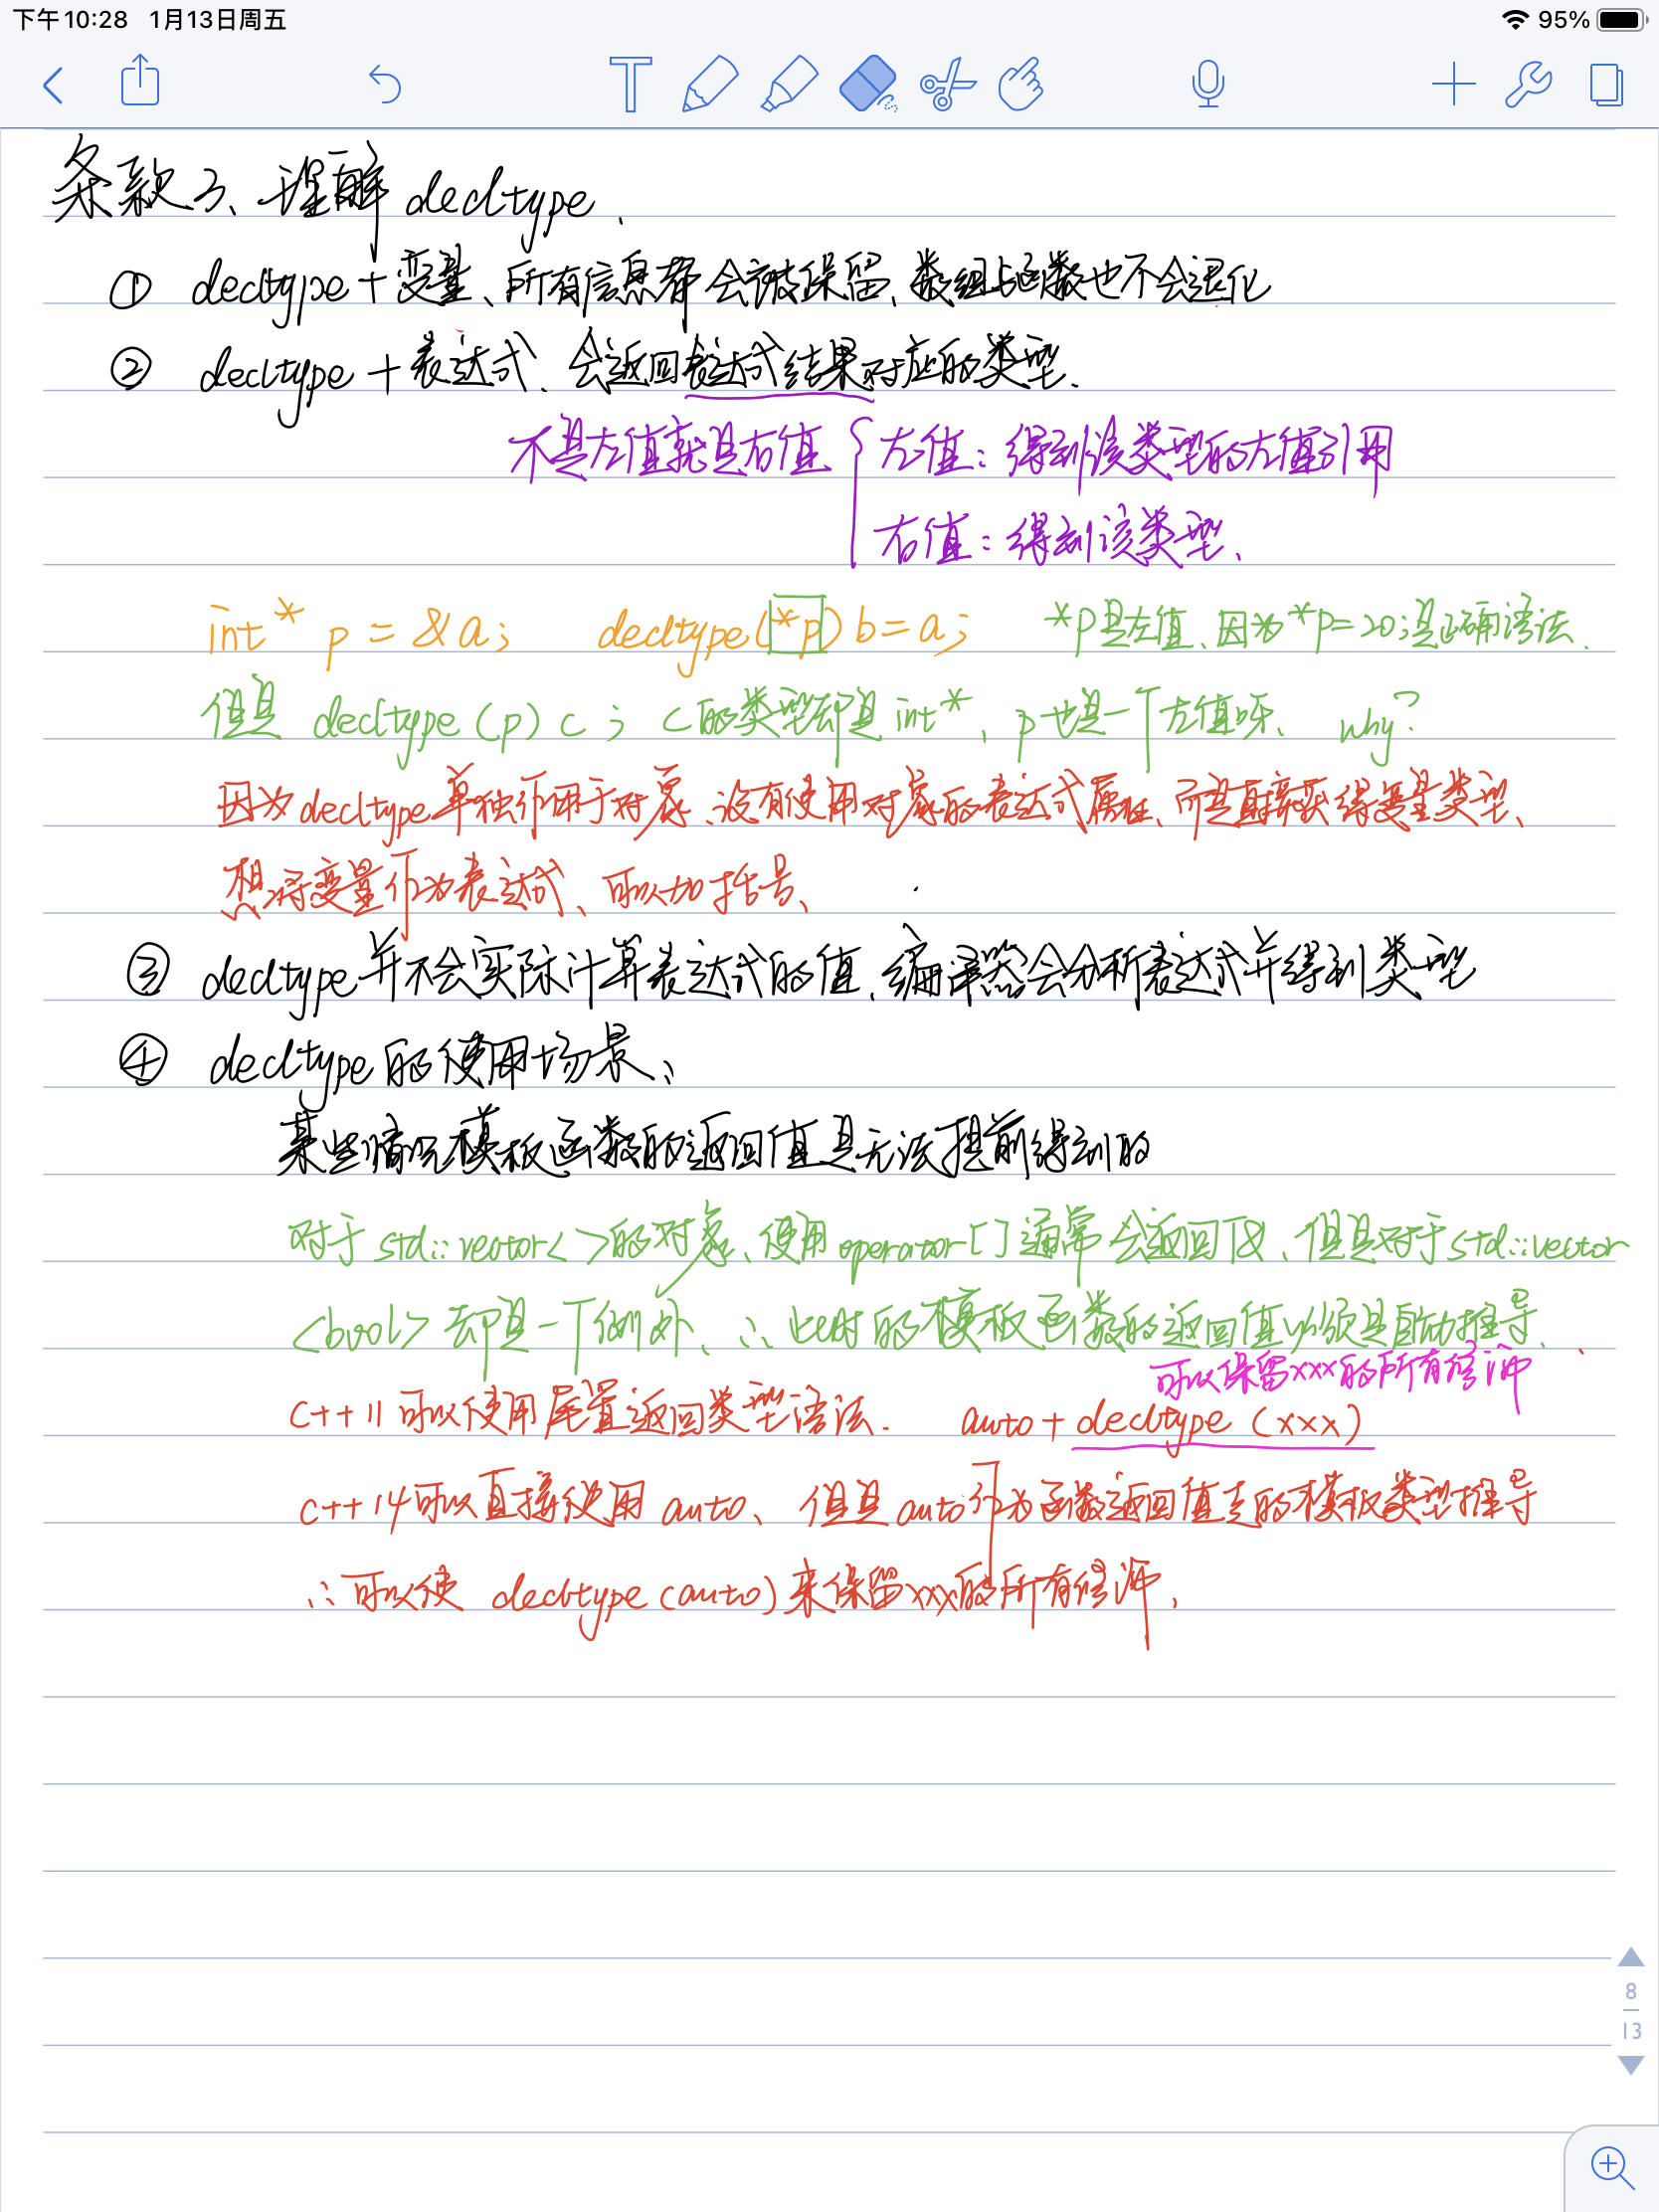 下午10:28 1月13日周五
95%
T
条款3、理解 decltype.
① decltype+变量、所有信息都会被保留、数组与函数也不会退化
② decltype+表达式、会返回表达式结果对应的类型.
不是左值就是右值 { 左值：得到该类型的左值引用
右值：得到该类型、
int* p = &a; decltype(*p) b=a; *p是左值、因为*p=20;是正确语法.
但是 decltype (p) c ; c的类型却是 int*、p也是一个左值呀、 why?
因为decltype单独作用于对象、没有使用对象的表达式属性、而是直接获得变量类型、
想将变量作为表达式、可以加括号、
③ decltype并不会实际计算表达式的值、编译器会分析表达式并得到类型
④ decltype的使用场景、
某些情况模板函数的返回值是无法提前得到的
对于 std::vector<>的对象、使用operator[]通常会返回T&、但是对于std::vector
<bool>却是一个例外、∴ 此时的模板函数的返回值必须是自动推导、
可以保留xxx的所有修饰
C++11可以使用尾置返回类型语法. auto+decltype (xxx)
C++14可以直接使用 auto、但是auto作为函数返回值走的模板类型推导
∴可以使 decltype(auto)来保留xxx的所有修饰、
8
13